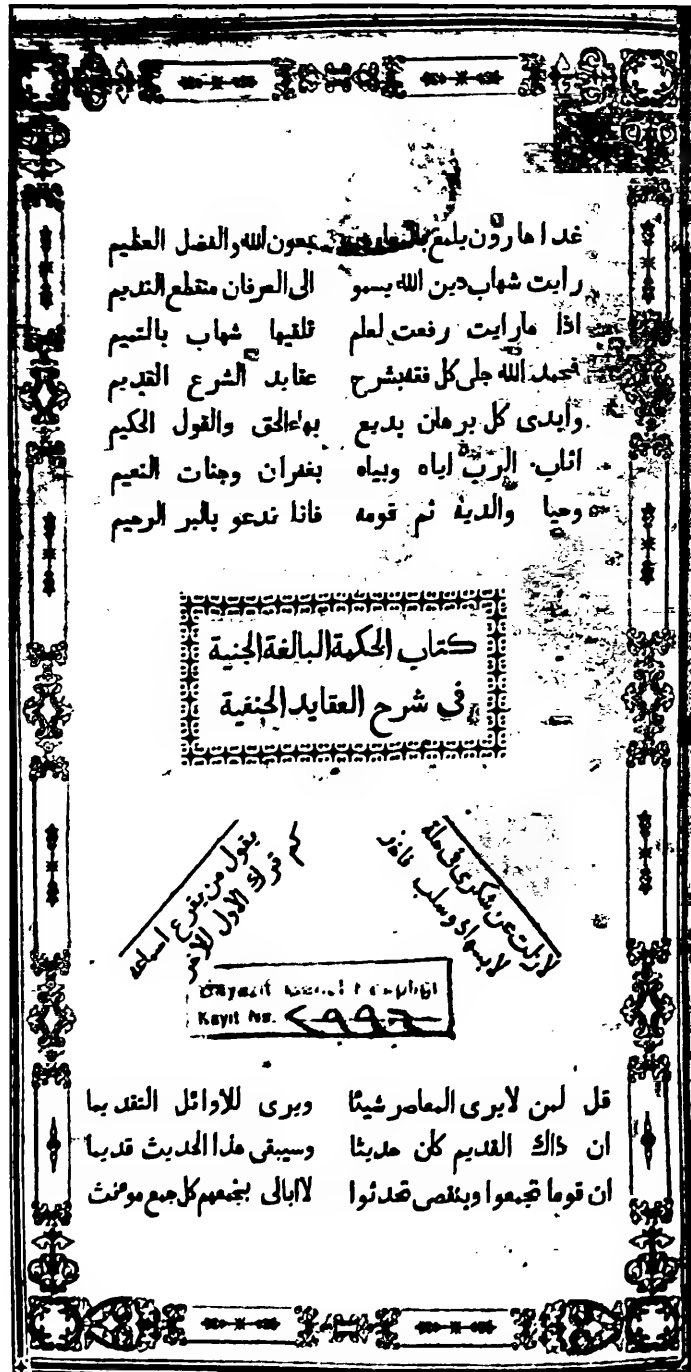 غدا هارون يلمع بالمعارف بعون الله والفضل العظيم
رايت شهاب دين الله يسمو الى العرفان منقطع النديم
اذا مارايت رفعت لعلم تلقيها شهاب بالتميم
فحمد الله جلى كل فقه بشرح عقايد الشرع القديم
وابدى كل برهان بديع بهاء الحق والقول الحكيم
اثاب الرب اياه وبياه بغفران وجنات النعيم
وحيا والديه ثم قومه فانا ندعو بالبر الرحيم
كتاب الحكمة البالغة الجنية
فى شرح العقايد الحنفية
لازلت عن شكرى فى حلة
لابسها ذو سلب فاخر
يقول من يقرع اسماعه
كم ترك الاول للآخر
Kayıt No. ٢٩٩٦
قل لمن لايرى المعاصر شيئا ويرى للاوائل التقديما
ان ذاك القديم كان حديثا وسيبقى هذا الحديث قديما
ان قوما تجمعوا وبنقصى تحدثوا لاابالى بجمعهم كل جمع مؤنث